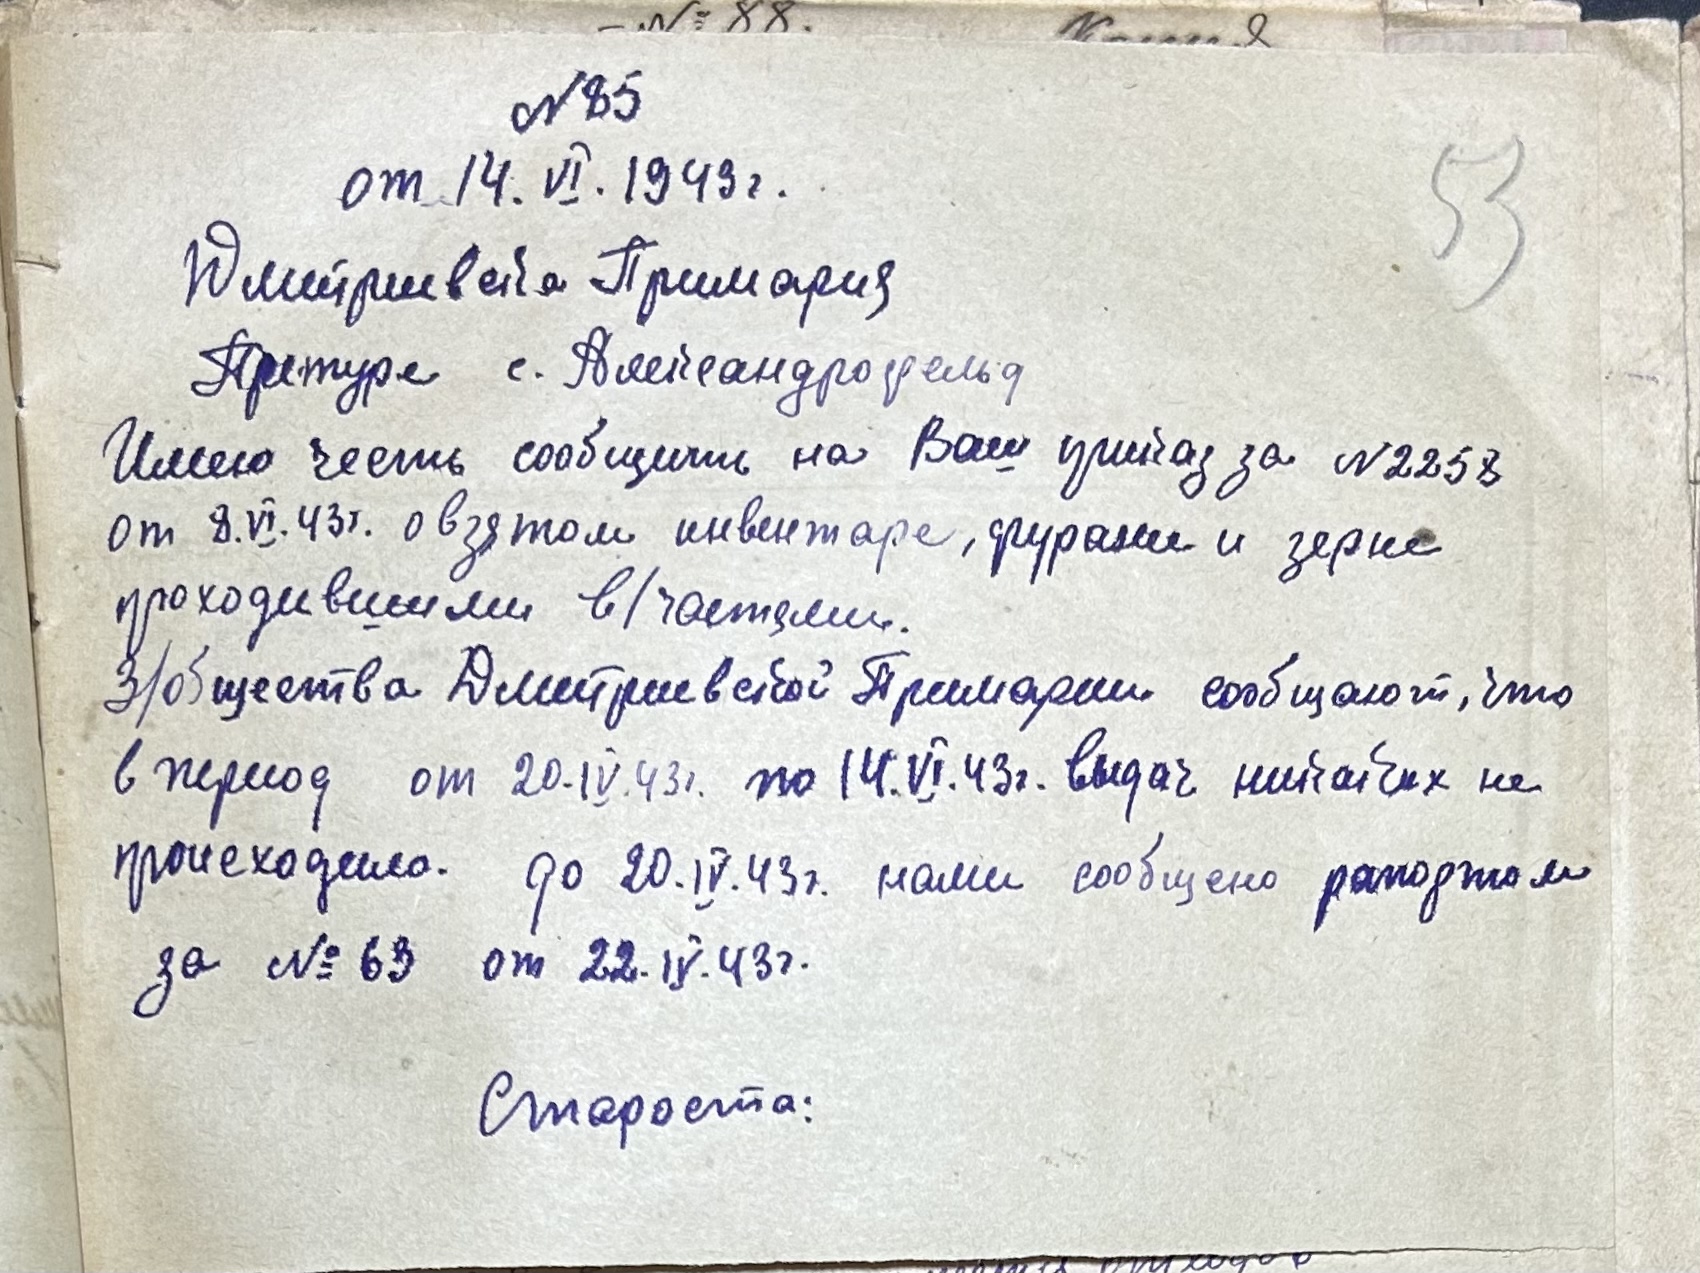 № 88. Копия
N 85
от 14. VI. 1943 г.
53
Дмитриевска Примария
Претуре с. Александрофельд
Имею честь сообщить на Ваш приказ за N 2258
от 8. VI. 43 г. о взятом инвентаре, фураже и зерне
проходившими в/частями.
З/общества Дмитриевской Примарии сообщают, что
в период от 20. IV. 43 г. по 14. VI. 43 г. выдач никаких не
происходило. до 20. IV. 43 г. нами сообщено рапортом
за № 63 от 22. IV. 43 г.
Староста: